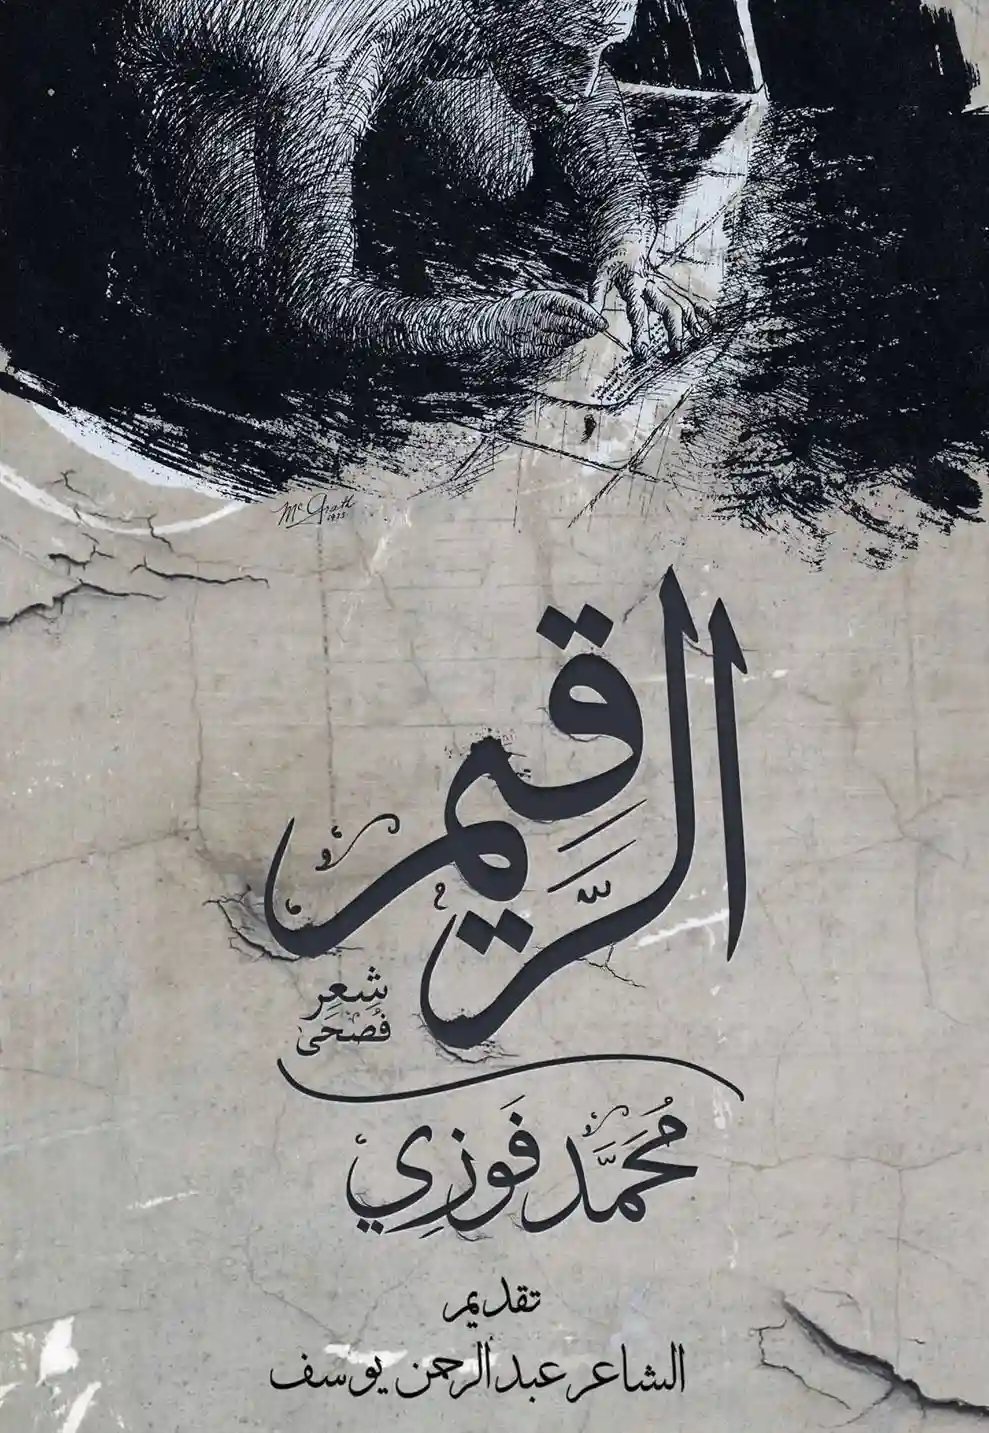 Mc Grath
1933
الرَّقِيم
شِعِر
فُصْحَىٰ
مُحَمَّد فَوزِي
تقديم
الشاعر عبد الرحمن يوسف